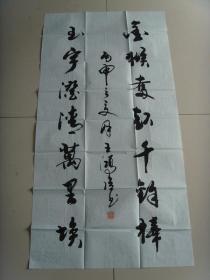 金猴奋起千钧棒
玉宇澄清万里埃
丙申之夏月王